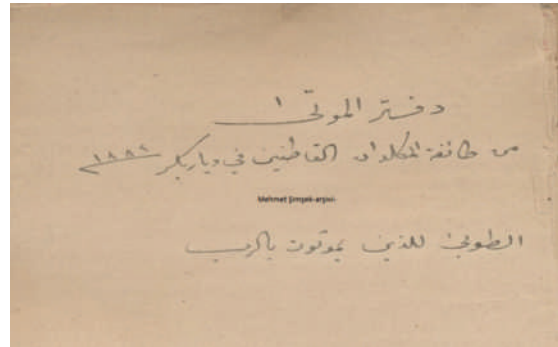 دفتر الموتى ١
من طائفة الكلدان القاطنين في دياربكر ١٨٩٢
Mehmet Şimşek-arşivi-
الطوبى للذين يموتون بالرب